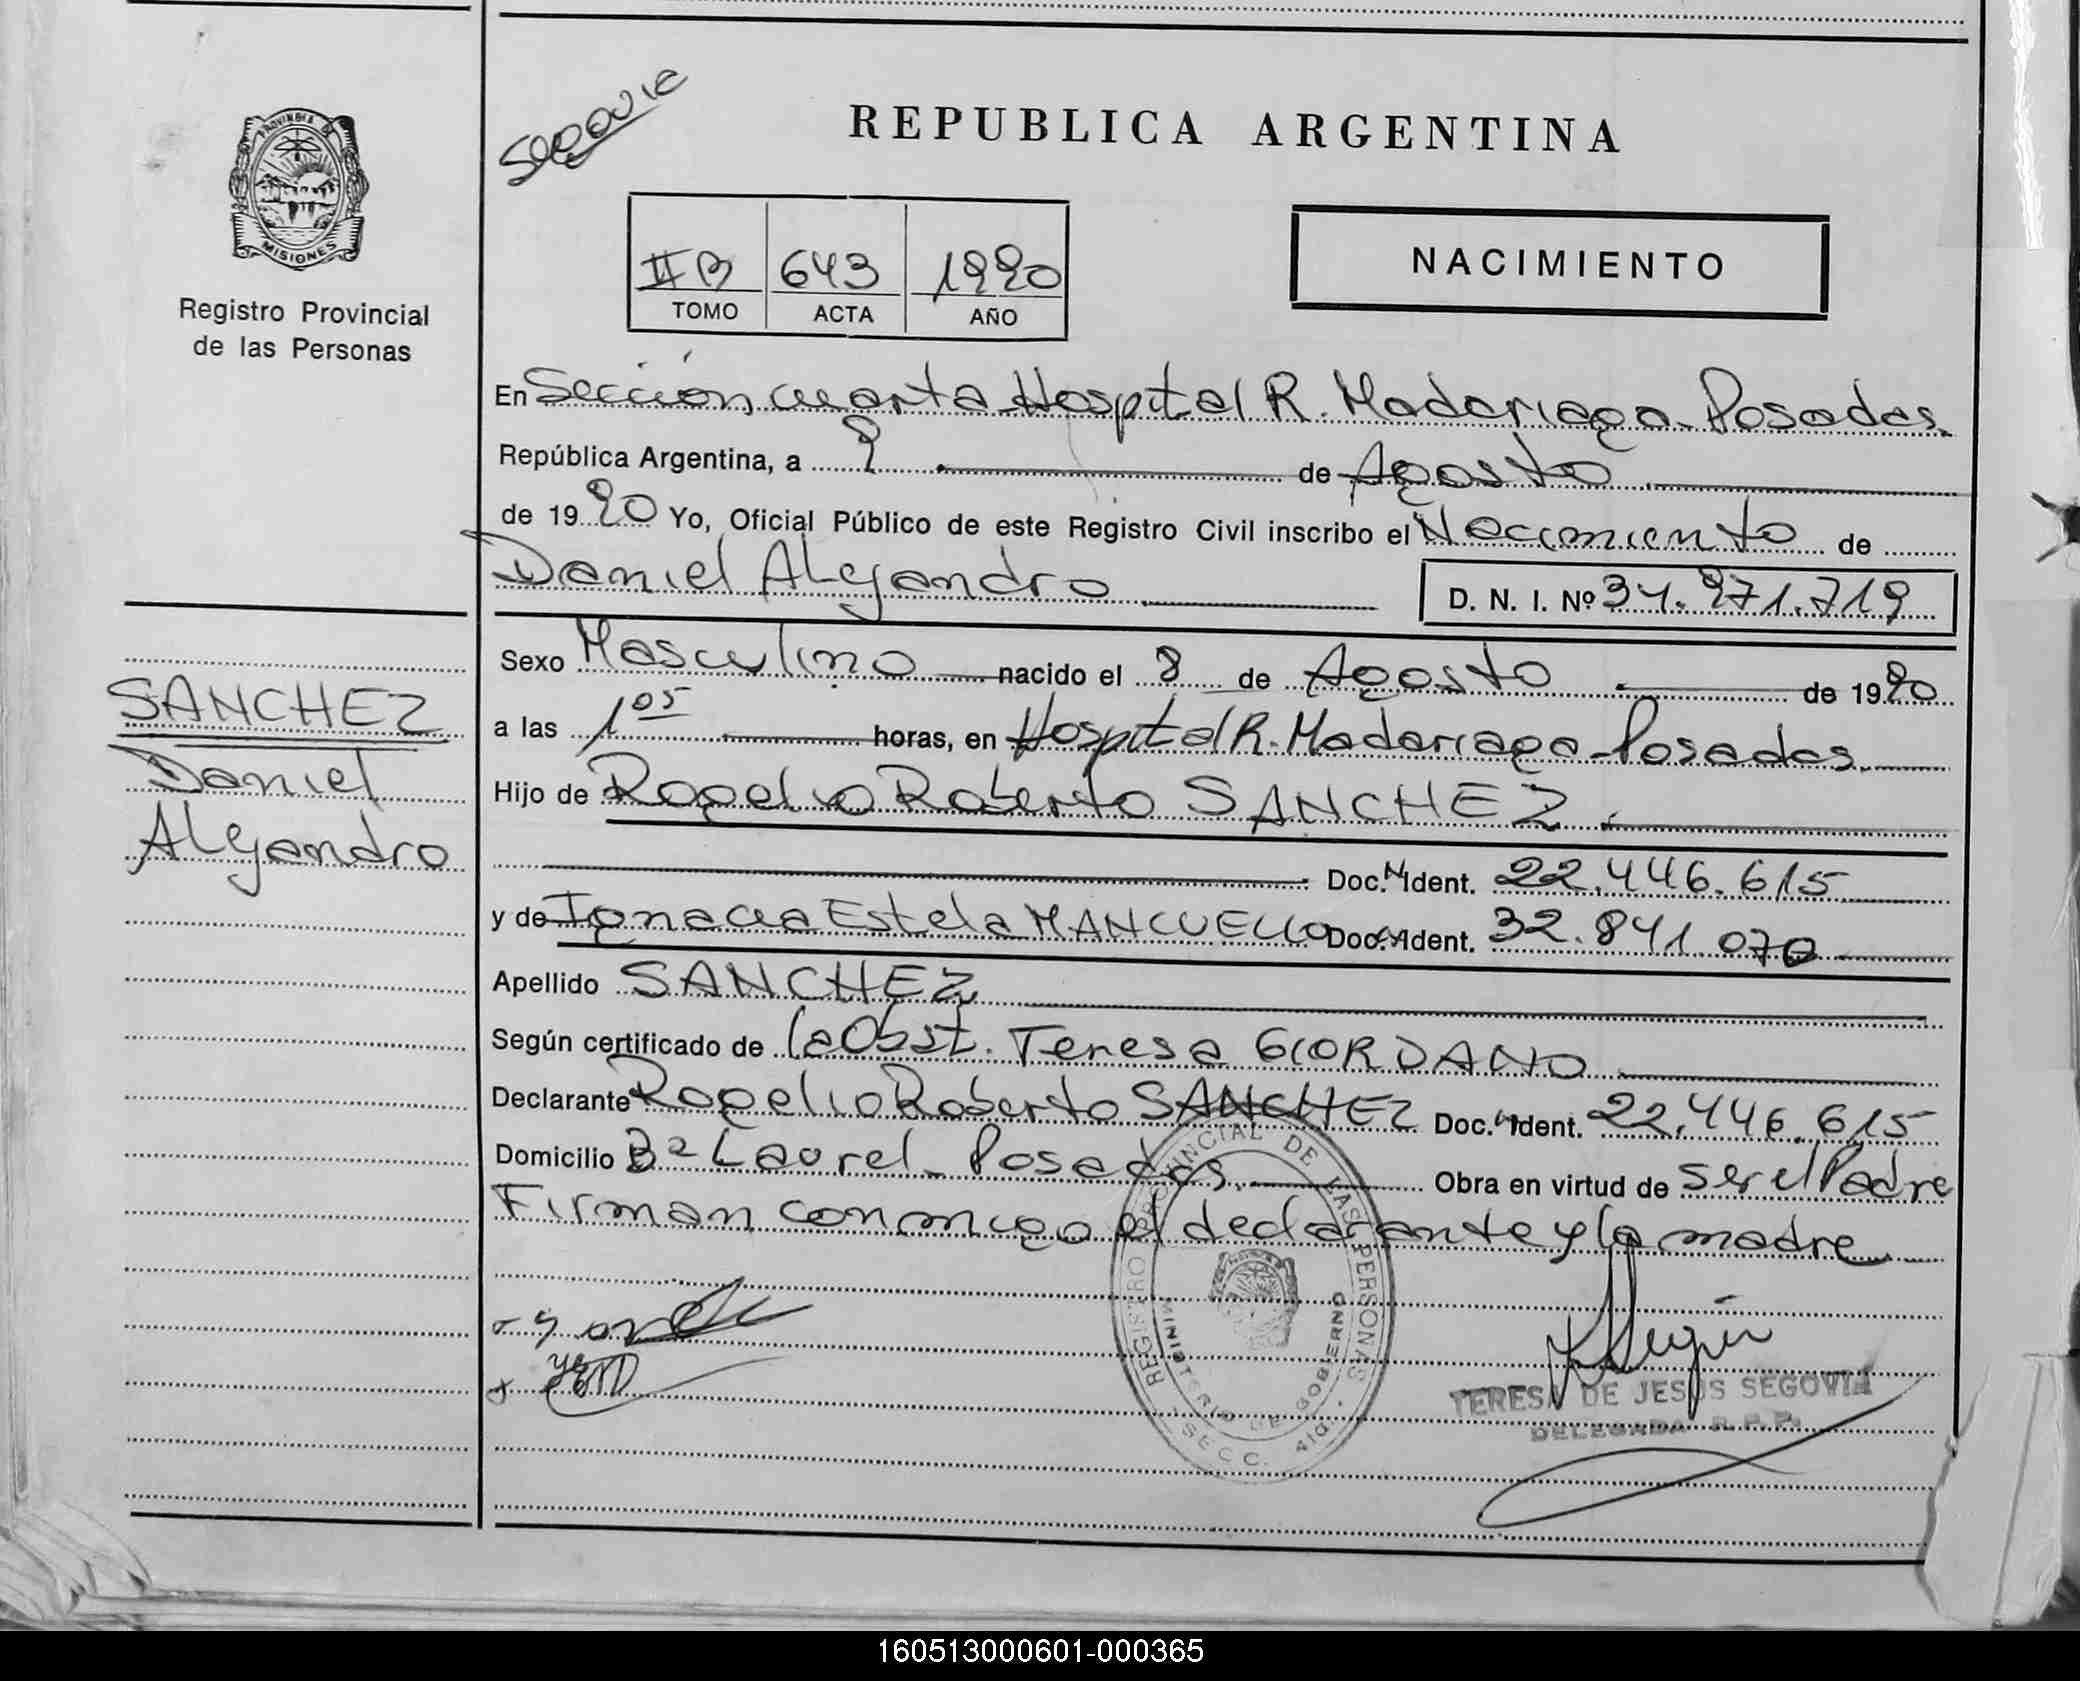 Segovia
REPUBLICA ARGENTINA
PROVINCIA DE
MISIONES
Registro Provincial
de las Personas
II B 643 1990
TOMO ACTA AÑO
NACIMIENTO
En Sección cuarta Hospital R. Madariaga - Posadas.
República Argentina, a 9 de Agosto
de 1990 Yo, Oficial Público de este Registro Civil inscribo el Nacimiento de
Daniel Alejandro
D. N. I. Nº 34.971.719
Sexo Masculino nacido el 8 de Agosto de 1990
a las 1 05 horas, en Hospital R. Madariaga - Posadas.
Hijo de Rogelio Roberto SANCHEZ.
Doc. N Ident. 22.446.615
y de Ignacia Estela MANCUELLO Doc. N Ident. 32.841.070
Apellido SANCHEZ
Según certificado de la Obst. Teresa GIORDANO
Declarante Rogelio Roberto SANCHEZ Doc. N Ident. 22.446.615
Domicilio Bº Laurel - Posadas. Obra en virtud de ser el Padre
Firman conmigo el declarante y la madre
SANCHEZ
Daniel
Alejandro
REGISTRO PROVINCIAL DE LAS PERSONAS
MINISTERIO DE GOBIERNO
SECC. 4ta.
TERESA DE JESUS SEGOVIA
DELEGADA R.P.P.
160513000601-000365